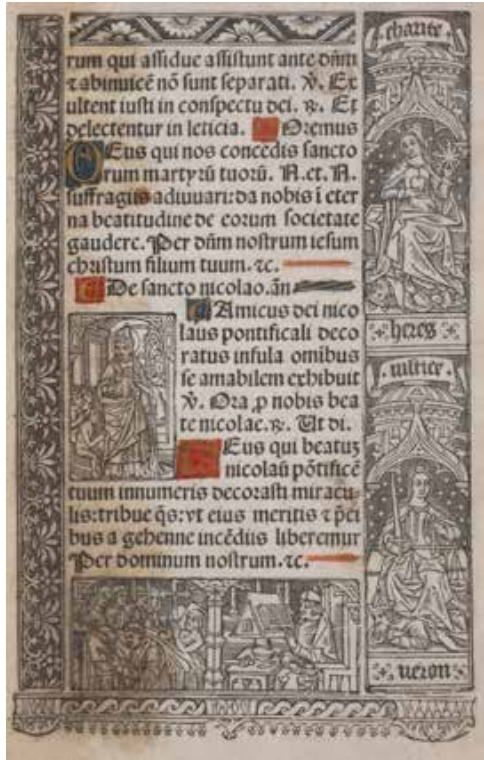 rum qui assidue assistunt ante dn̄m
⁊ abinuicē nō sunt separati. ℣. Ex
ultent iusti in conspectu dei. ℟. Et
delectentur in leticia. Oremus
DEus qui nos concedis sancto
rum martyrū tuorū. N. et. N.
suffragiis adiuuari: da nobis ī eter
na beatitudine de eorum societate
gaudere. Per dn̄m nostrum iesum
christum filium tuum. ⁊c.
De sancto nicolao. an̄
Amicus dei nico
laus pontificali deco
ratus infula omibus
se amabilem exhibuit
℣. Ora ꝓ nobis bea
te nicolae. ℟. Ut di.
DEus qui beatuꝫ
nicolaū pōtificē
tuum innumeris decorasti miracu-
lis: tribue q̄s: vt eius meritis ⁊ p̄ci
bus a gehenne incēdiis liberemur
Per dominum nostrum. ⁊c.
charite
heres
iustice
neron